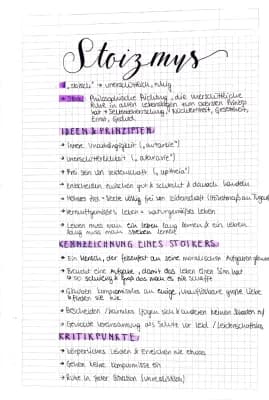 Stoizmus
"stoisch" → unerschütterlich, ruhig
Stoa: Philosophische Richtung, die unerschütterliche
Ruhe in allen Lebenslagen zum obersten Prinzip
hat → Selbstbeherrschung, Nüchternheit, Gelassenheit,
Ernst, Geduld
IDEEN & PRINZIPIEN:
→ Innere Unabhängigkeit ("autarkie")
→ Unerschütterlichkeit ("ataraxie")
→ Frei sein von Leidenschaft ("apatheia")
→ Entscheiden zwischen gut & schlecht & danach handeln
→ Seele völlig frei von Leidenschaft
→ Vernunftgemässes Leben = naturgemässes Leben
→ Leben muss man ein Leben lang lernen & ein Leben
lang muss man sterben lernen
KENNZEICHNUNG EINES STOIKERS:
→ Ein Mensch, der felsenfest an seine moralischen Aufgaben
→ Braucht eine Aufgabe, damit das Leben einen Sinn hat
→ so schwierig & gross das man es nie schafft
→ Glauben kompromisslos an ewige, unauflösbare grosse Liebe
& finden sie nie
→ Bescheiden /
→ Gewollte Vereinsamung als Schutz vor Leid / Leidenschaftliches
KRITIKPUNKTE:
→ Körperliches Leiden & Erreichen nie etwas
→ Gehen keine Kompromisse ein
→ Ruhe in jeder Situation (unrealistisch)